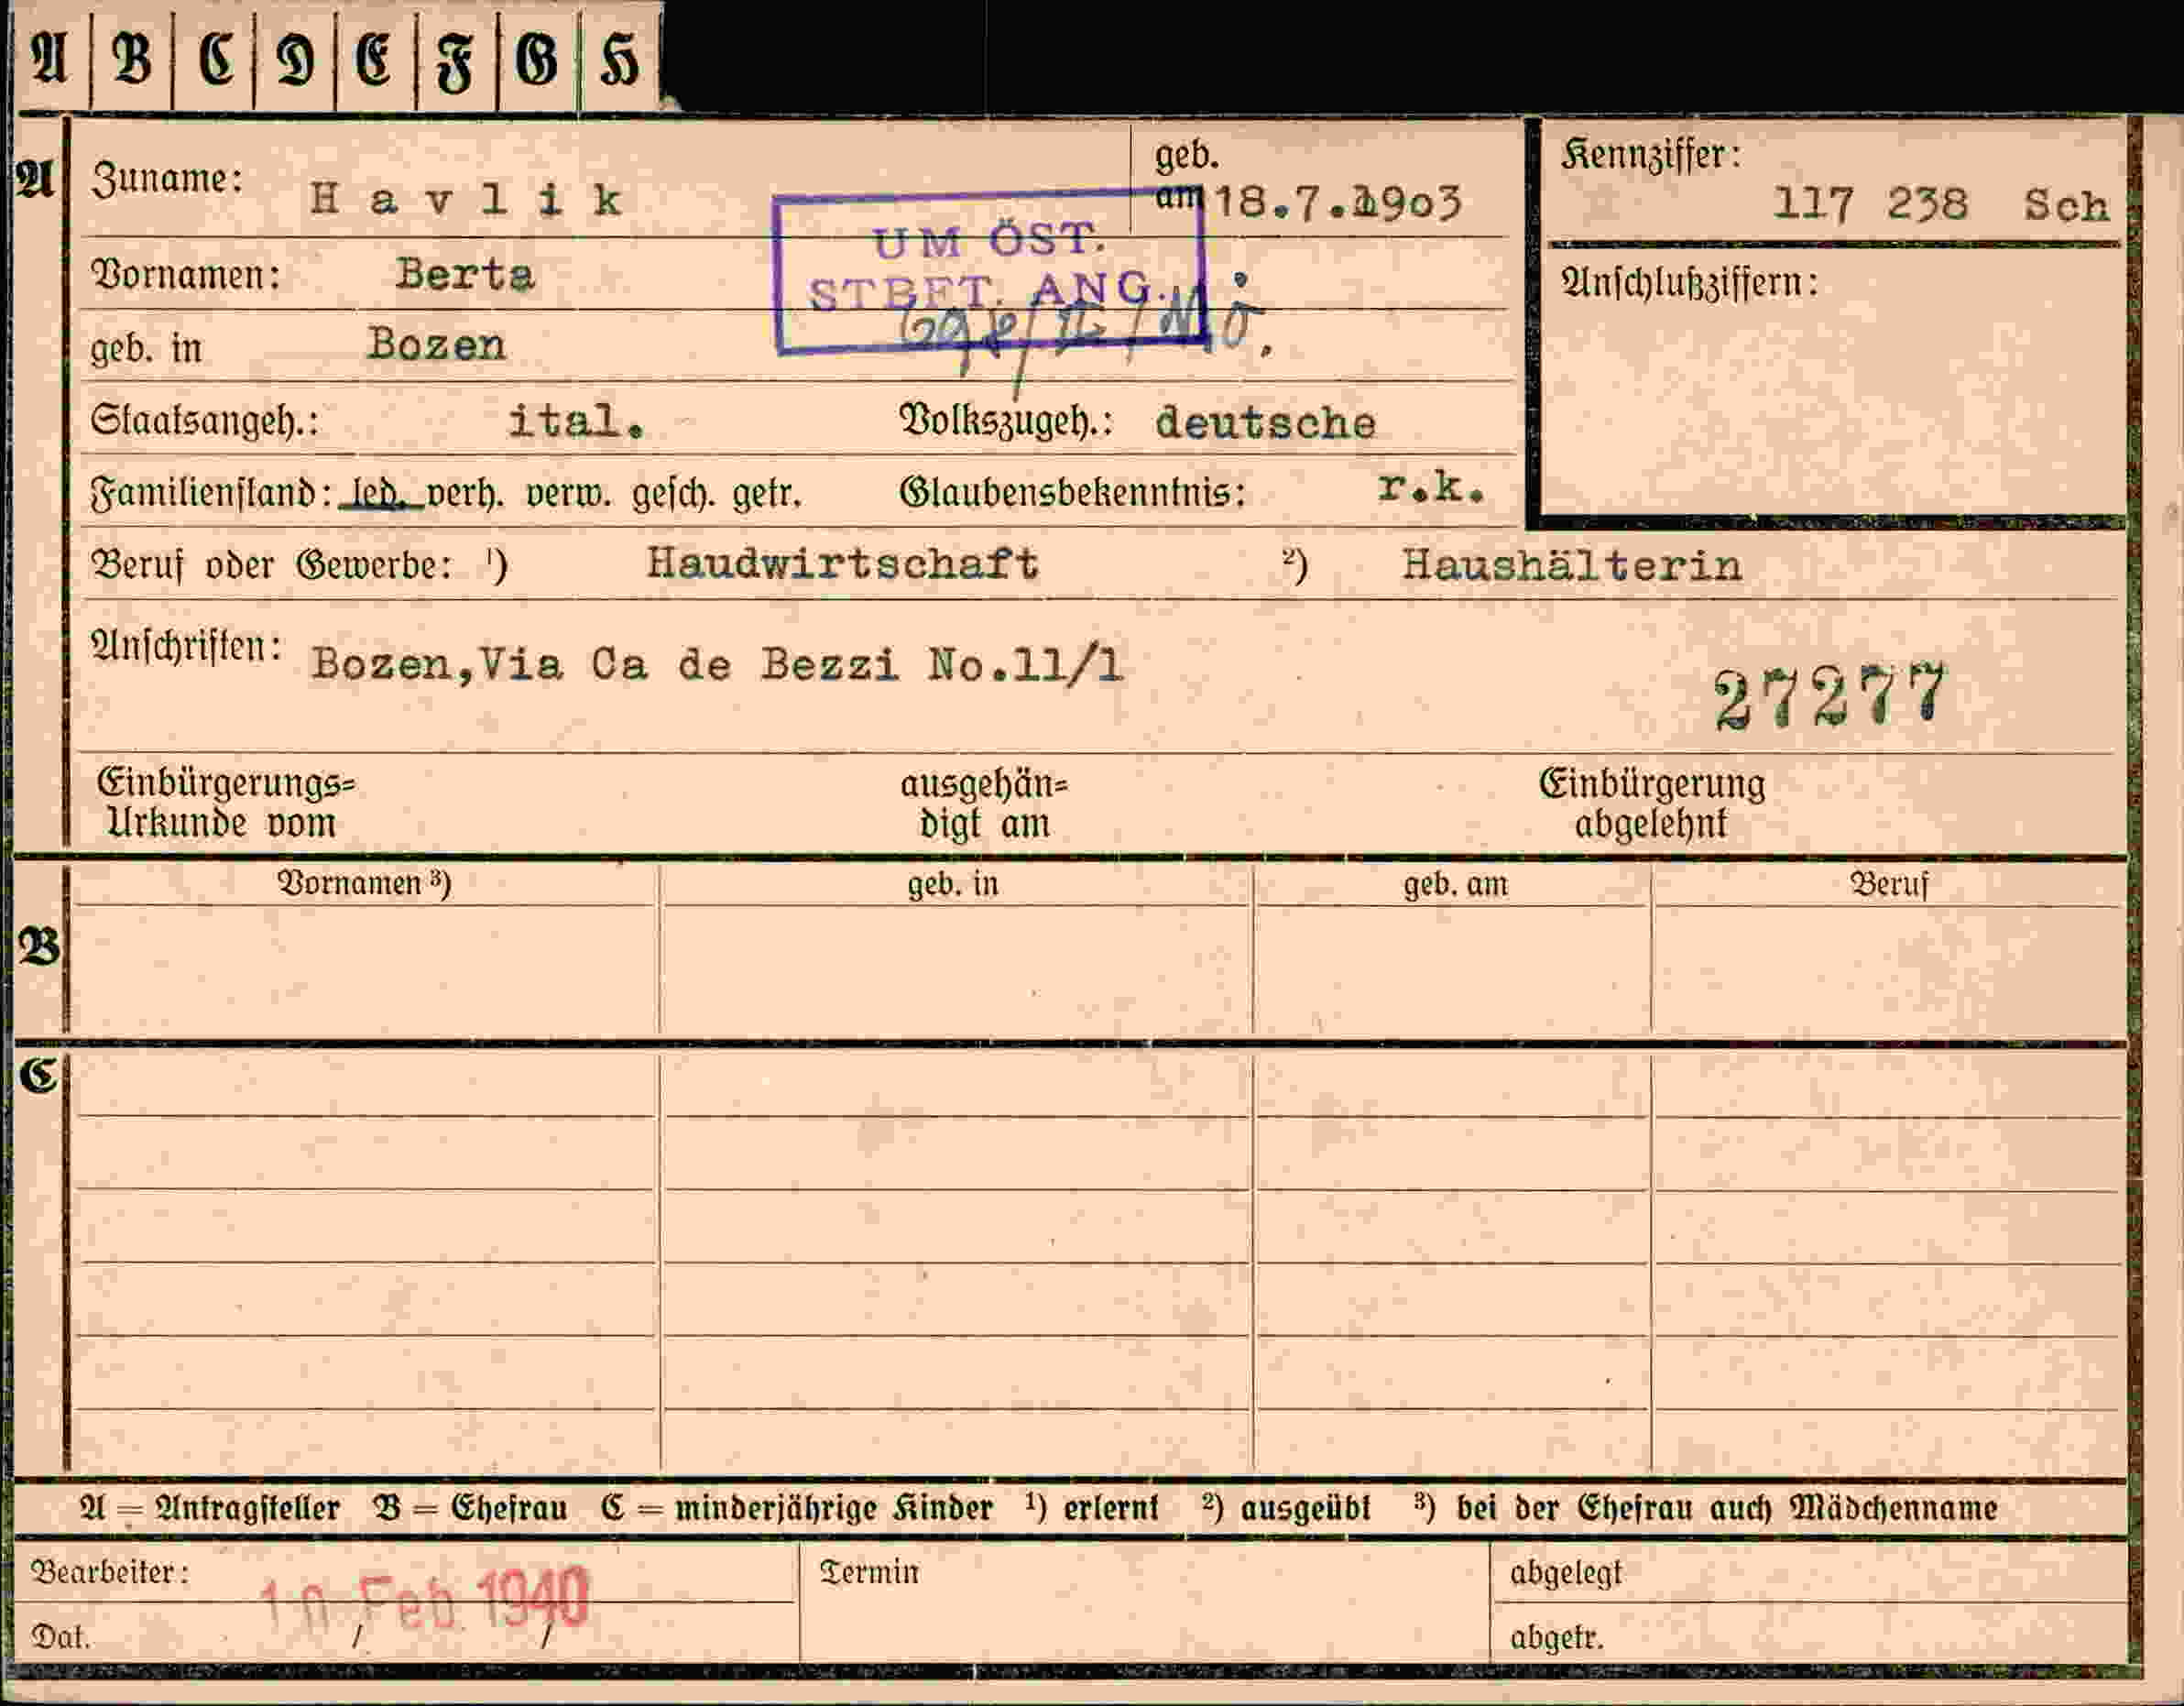 A B C D E F G H
A
Zuname: Havlik
geb. am 18.7.1903
Kennziffer: 117 238 Sch
UM ÖST.
STBFT. ANG.
Vornamen: Berta
Anschlußziffern:
geb. in Bozen
Staatsangeh.: ital. Volkszugeh.: deutsche
Familienstand: led. verh. verw. gesch. getr. Glaubensbekenntnis: r.k.
Beruf oder Gewerbe: ¹) Haudwirtschaft ²) Haushälterin
Anschriften: Bozen,Via Ca de Bezzi No.11/1
27277
Einbürgerungs=
Urkunde vom
ausgehän=
digt am
Einbürgerung
abgelehnt
B
Vornamen ³) geb. in geb. am Beruf
C
A = Antragsteller B = Ehefrau C = minderjährige Kinder ¹) erlernt ²) ausgeübt ³) bei der Ehefrau auch Mädchenname
Bearbeiter: Termin abgelegt
10 Feb. 1940
Dat. / / abgetr.